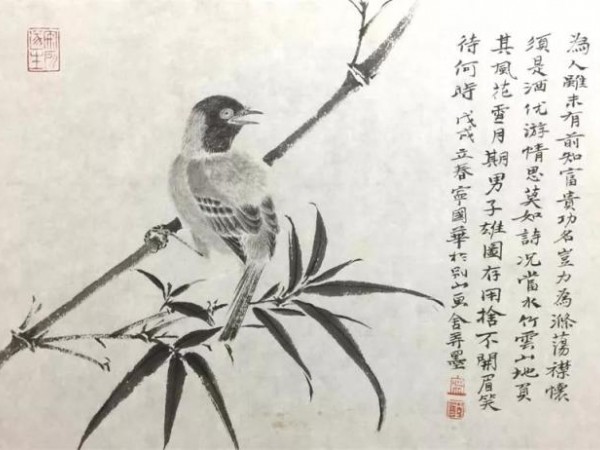 為人雖未有前知富貴功名豈力為滌蕩襟懷
須是酒优游情思莫如詩况當水竹雲山地負
其風花雪月期男子雄圖存用捨不開眉笑
待何時 戊戌立春寧國華於别山舍弄墨